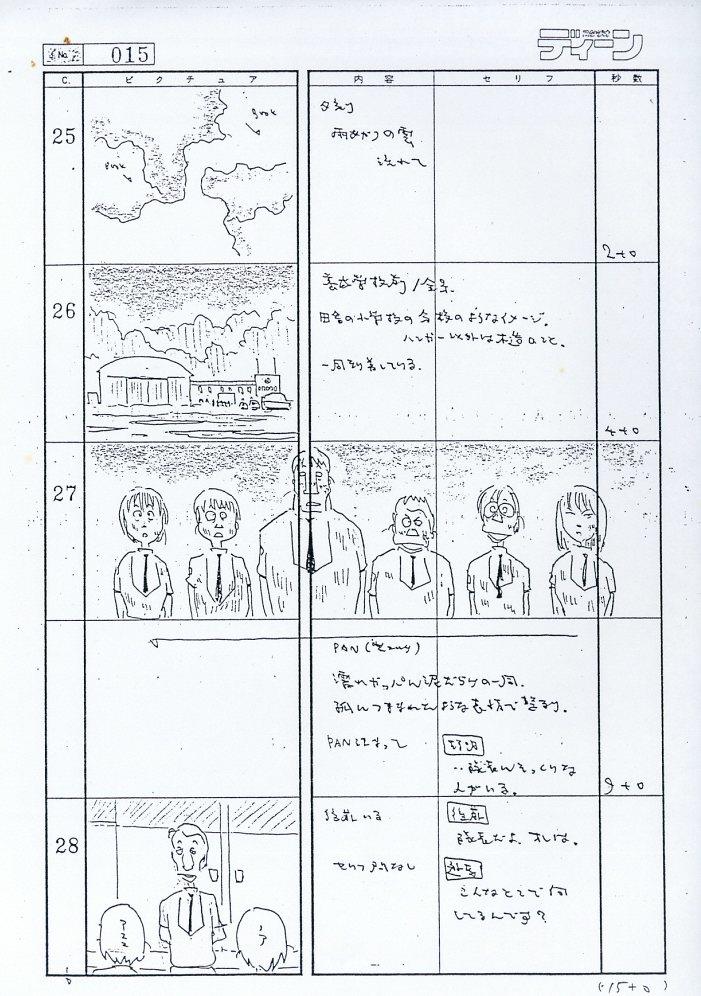 No. 015
ディーン
C. ピクチュア 内容 セリフ 秒数
25
Book
Book
夕刻
雨あがりの雲
流れて
2+0
26
田舎の小学校の分校のようなイメージ。
ハンガー以外は木造のこと。
一同到着している。
4+0
27
PAN
濡れガッパ 泥だらけの一同。
狐につままれたような表情で整列。
PANによって
‥隊長にそっくりな
人がいる。
9+0
28
後藤いる
後藤
隊長だよ、オレは。
セリフ
こんなとこで何
してるんです?
ノア
(15+0)